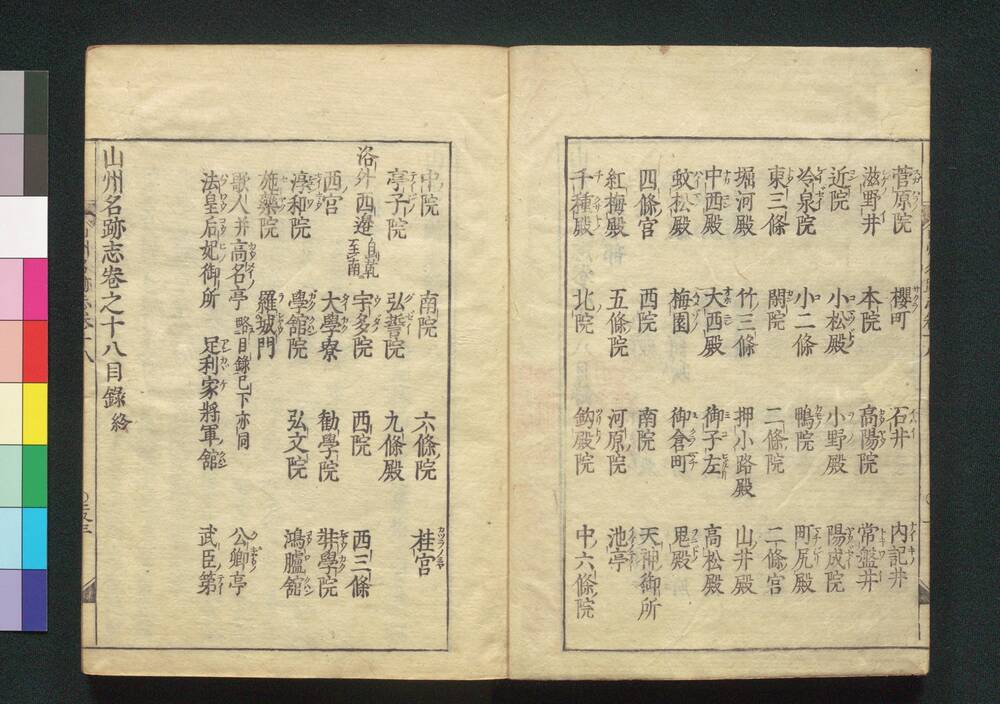 菅原院 櫻町 石井 内記井
滋野井 本院 高陽院 常盤井
近院 小松殿 小野殿 陽成院
冷泉院 小二條 鴨院 町尻殿
東三條 閑院 二條院 二條宮
堀河殿 竹三條 押小路殿 山井殿
中西殿 大西殿 御子左 高松殿
蚊松殿 梅園 御倉町 鬼殿
四條宮 西院 南院 天神御所
紅梅殿 五條院 河原院 池亭
千種殿 北院 釣殿院 中六條院
中院 南院 六條院 桂宮
亭子院 弘誓院 九條殿
洛外西邊 自乾至南
西宮 宇多院 西院 西三條
淳和院 大學寮 勸學院 奬學院
施藥院 學館院 弘文院 鴻臚舘
羅城門
歌人并高名亭 略目録已下亦同 公卿亭
法皇后妃御所 足利家將軍舘 武臣第
山州名跡志卷之十八目録終